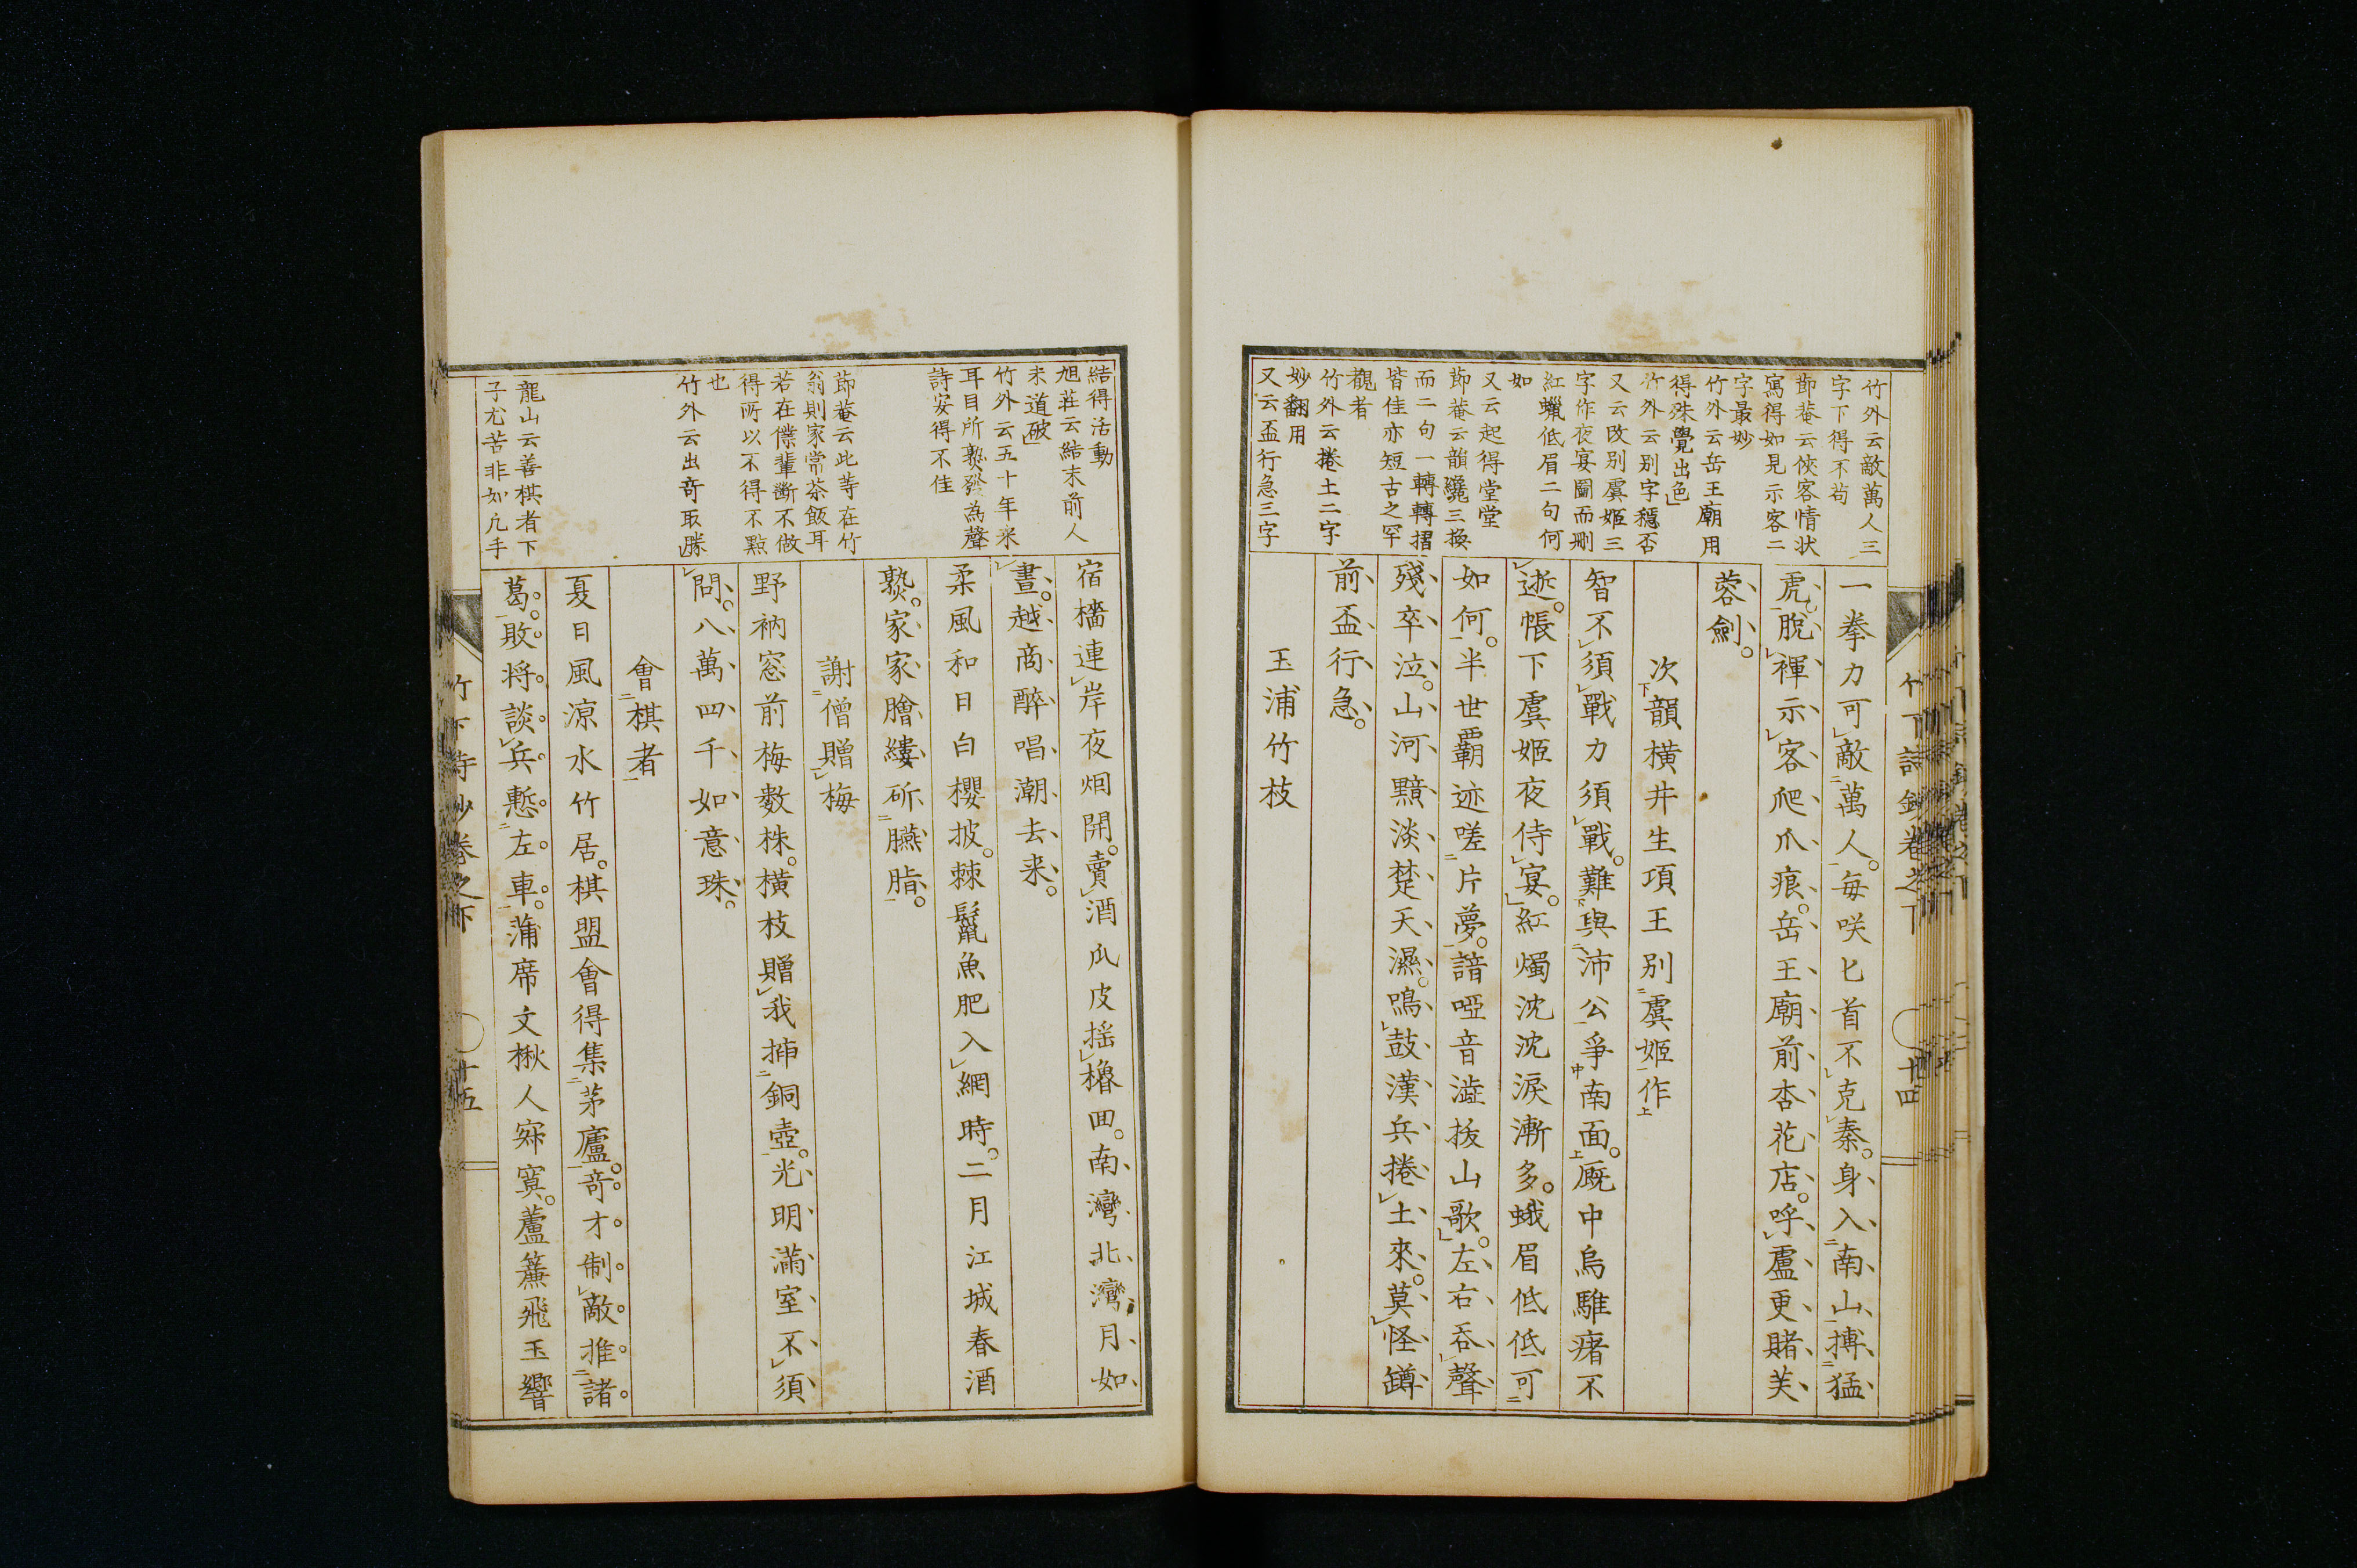 竹外云敵萬人三
字下得不苟
節菴云俠客情状
寫得如見示客二
字最妙
竹外云岳王廟用
得殊覺出色
竹外云别字穏否
又云改别虞姬三
字作夜宴圖而刪
紅蠟低眉二句何
如
又云起得堂堂
節菴云韻纔三換
而二句一轉轉摺
皆佳亦短古之罕
觀者
竹外云捲土二字
妙翻用
又云盃行急三字
一拳力可敵萬人。每咲匕首不克秦。身入南山搏猛
虎。脫褌示客爬爪痕。岳王廟前杏花店。呼盧更賭芙
蓉劍。
次韻横井生項王别虞姬作
智不須戰力須戰。難與沛公爭南面。厩中烏騅瘏不
逝。帳下虞姬夜侍宴。紅燭沈沈淚漸多。蛾眉低低可
如何。半世覇迹嗟片夢。諳啞音澁拔山歌。左右吞聲
殘卒泣。山河黯淡楚天濕。鳴鼓漢兵捲土來。莫怪罇
前盃行急。
玉浦竹枝
竹下詩鈔卷之下
十四
結得活動
旭荘云結末前人
未道破
竹外云五十年來
耳目所熟發為聲
詩安得不佳
節菴云此等在竹
翁則家常茶飯耳
若在儓輩斷不做
得所以不得不點
也
竹外云出竒取勝
龍山云善棋者下
子尤苦非如凢手
宿檣連岸夜烟開。賣酒瓜皮揺櫓回。南灣北灣月如
晝。越商醉唱潮去来。
柔風和日白櫻披。棘鬣魚肥入網時。二月江城春酒
熟。家家膾縷斫臙脂。
謝僧贈梅
野衲窓前梅數株。横枝贈我挿銅壺。光明滿室不須
問。八萬四千如意珠。
會棋者
夏日風凉水竹居。棋盟會得集茅廬。竒才制敵推諸
葛。敗将談兵慙左車。蒲席文楸人寂寞。蘆簾飛玉響
竹下詩鈔卷之下
十五